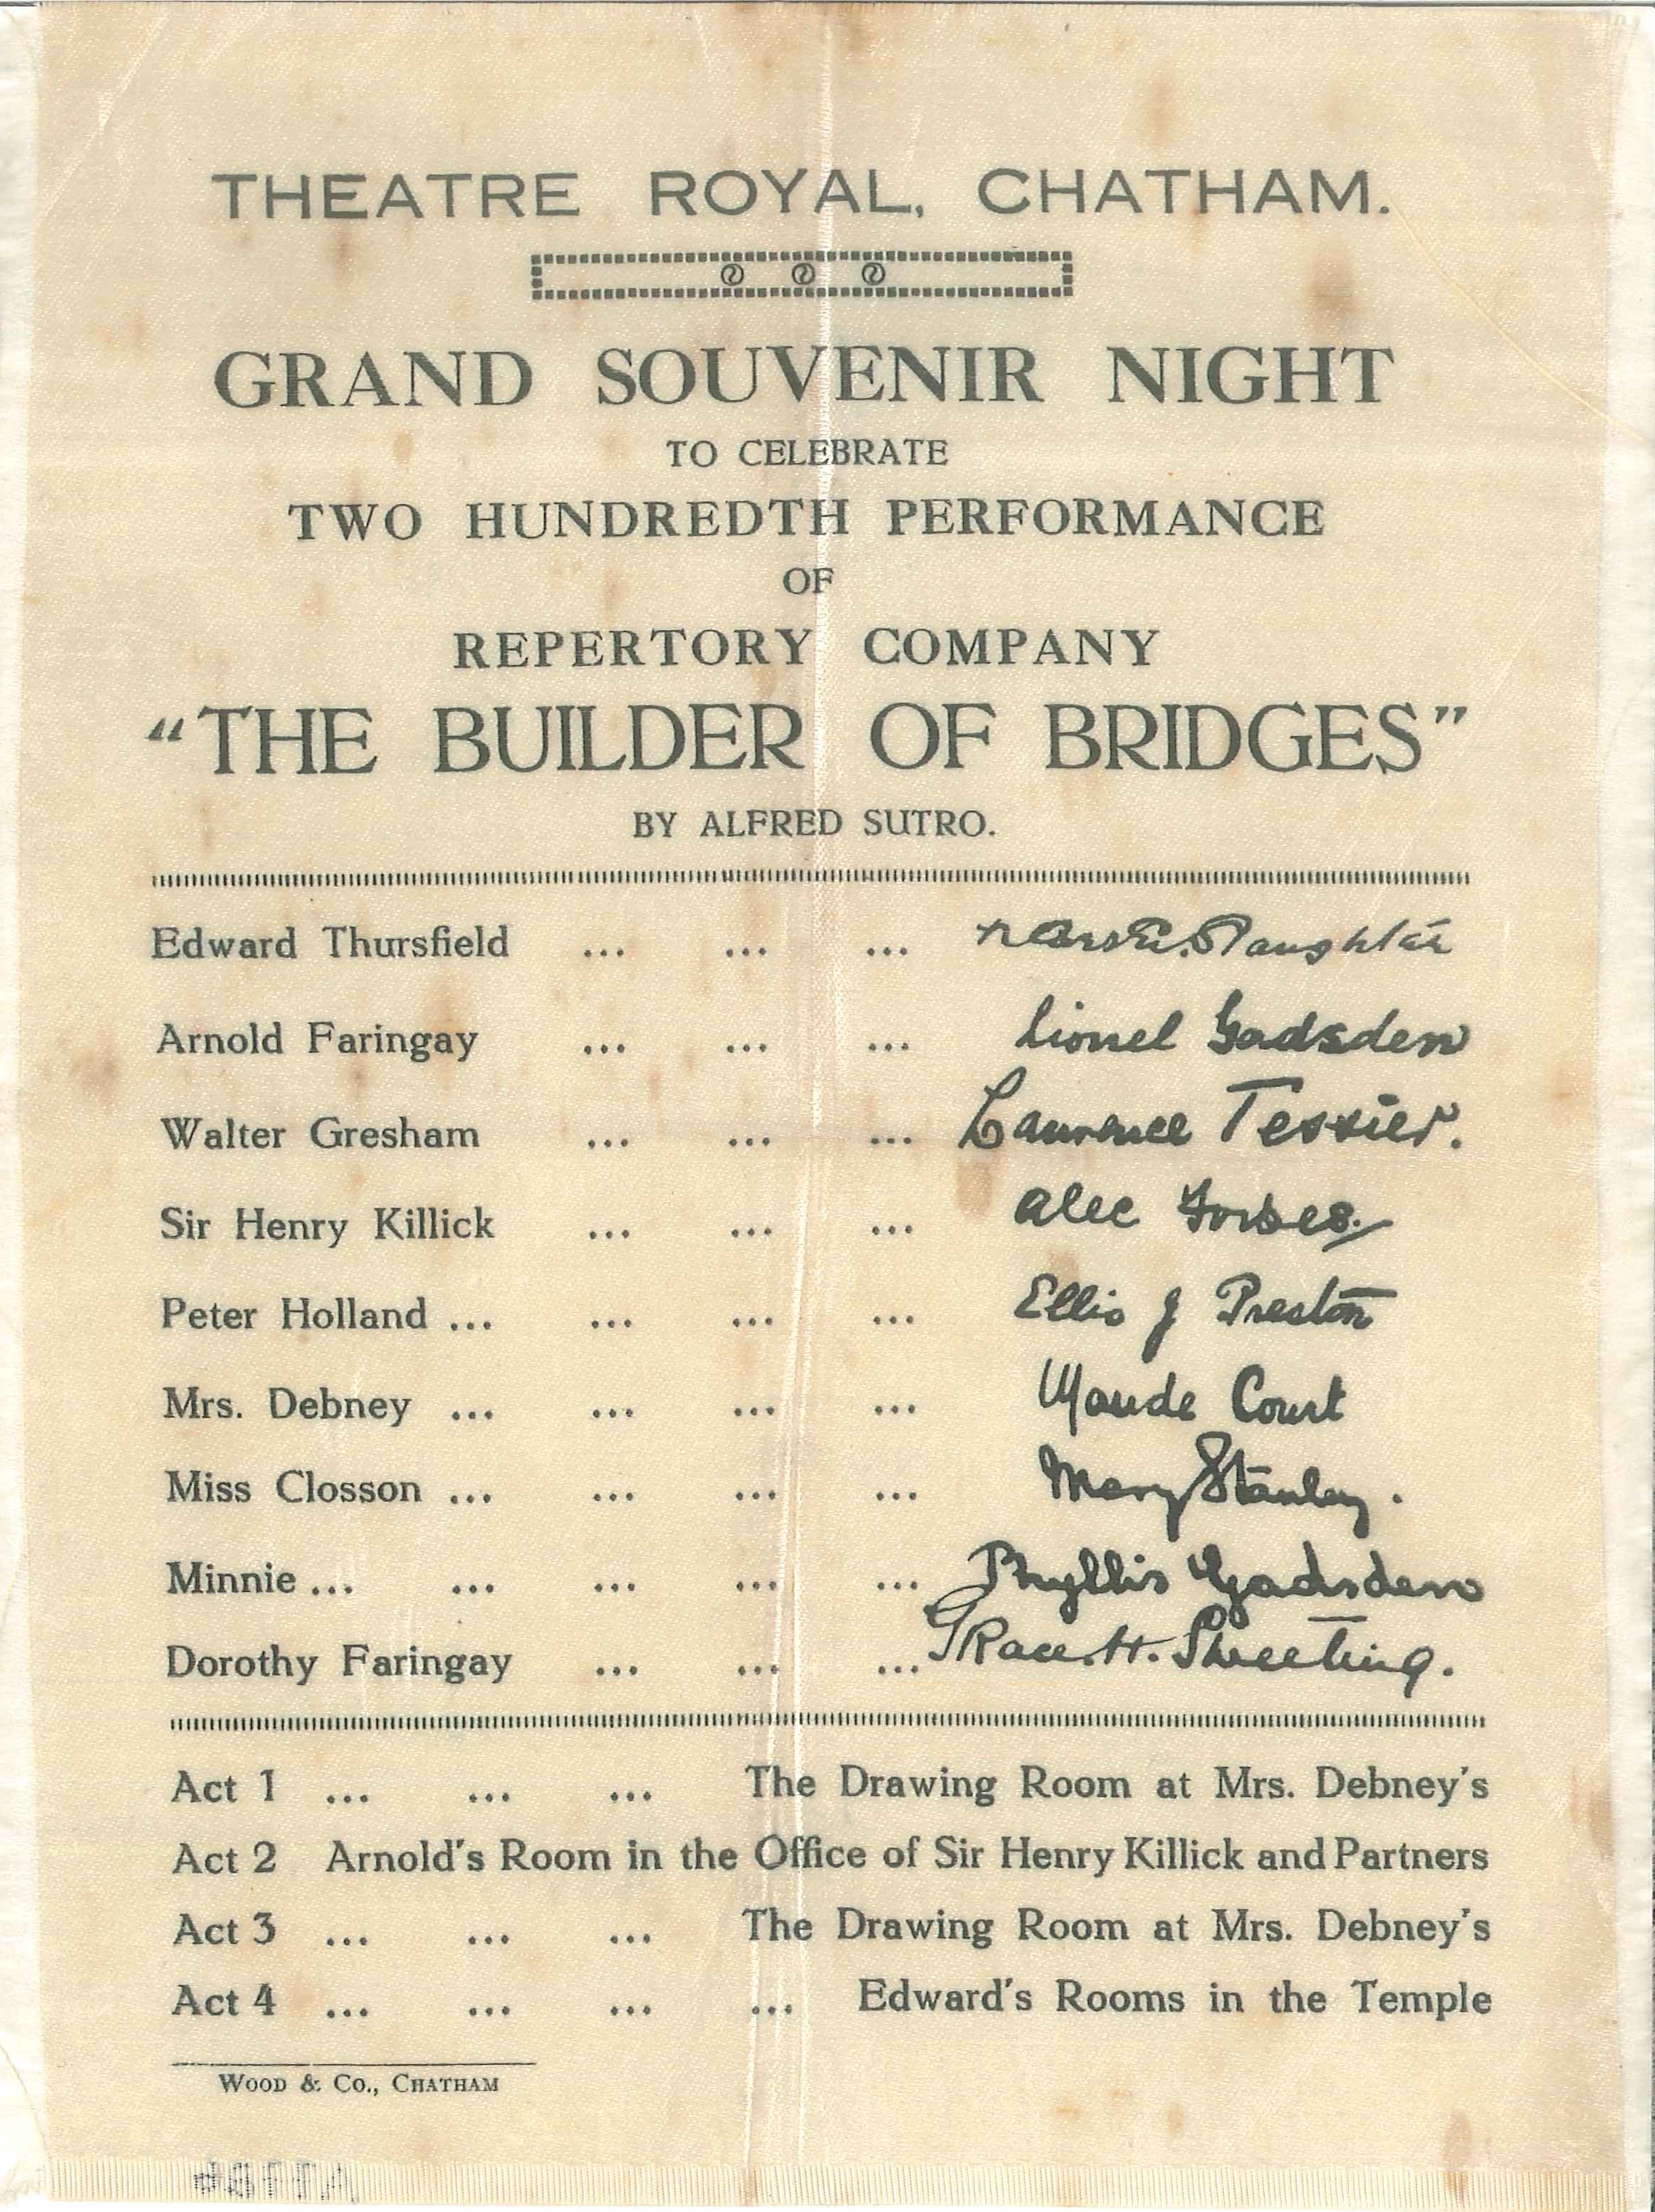 THEATRE ROYAL, CHATHAM.
GRAND SOUVENIR NIGHT
TO CELEBRATE
TWO HUNDREDTH PERFORMANCE
OF
REPERTORY COMPANY
“THE BUILDER OF BRIDGES”
BY ALFRED SUTRO.
Edward Thursfield ... ... ... Slaughter
Arnold Faringay ... ... ... Lionel Gadsden
Walter Gresham ... ... ... Laurence Tessier.
Sir Henry Killick ... ... ... Alec Forbes.
Peter Holland ... ... ... ... Ellis J Preston
Mrs. Debney ... ... ... ... Maude Court
Miss Closson ... ... ... ... Mary Stanley.
Minnie ... ... ... ... ... Phyllis Gadsden
Dorothy Faringay ... ... ... Grace. H. Sheeting.
Act 1 ... ... ... The Drawing Room at Mrs. Debney's
Act 2 Arnold's Room in the Office of Sir Henry Killick and Partners
Act 3 ... ... ... The Drawing Room at Mrs. Debney's
Act 4 ... ... ... ... Edward's Rooms in the Temple
WOOD & CO., CHATHAM